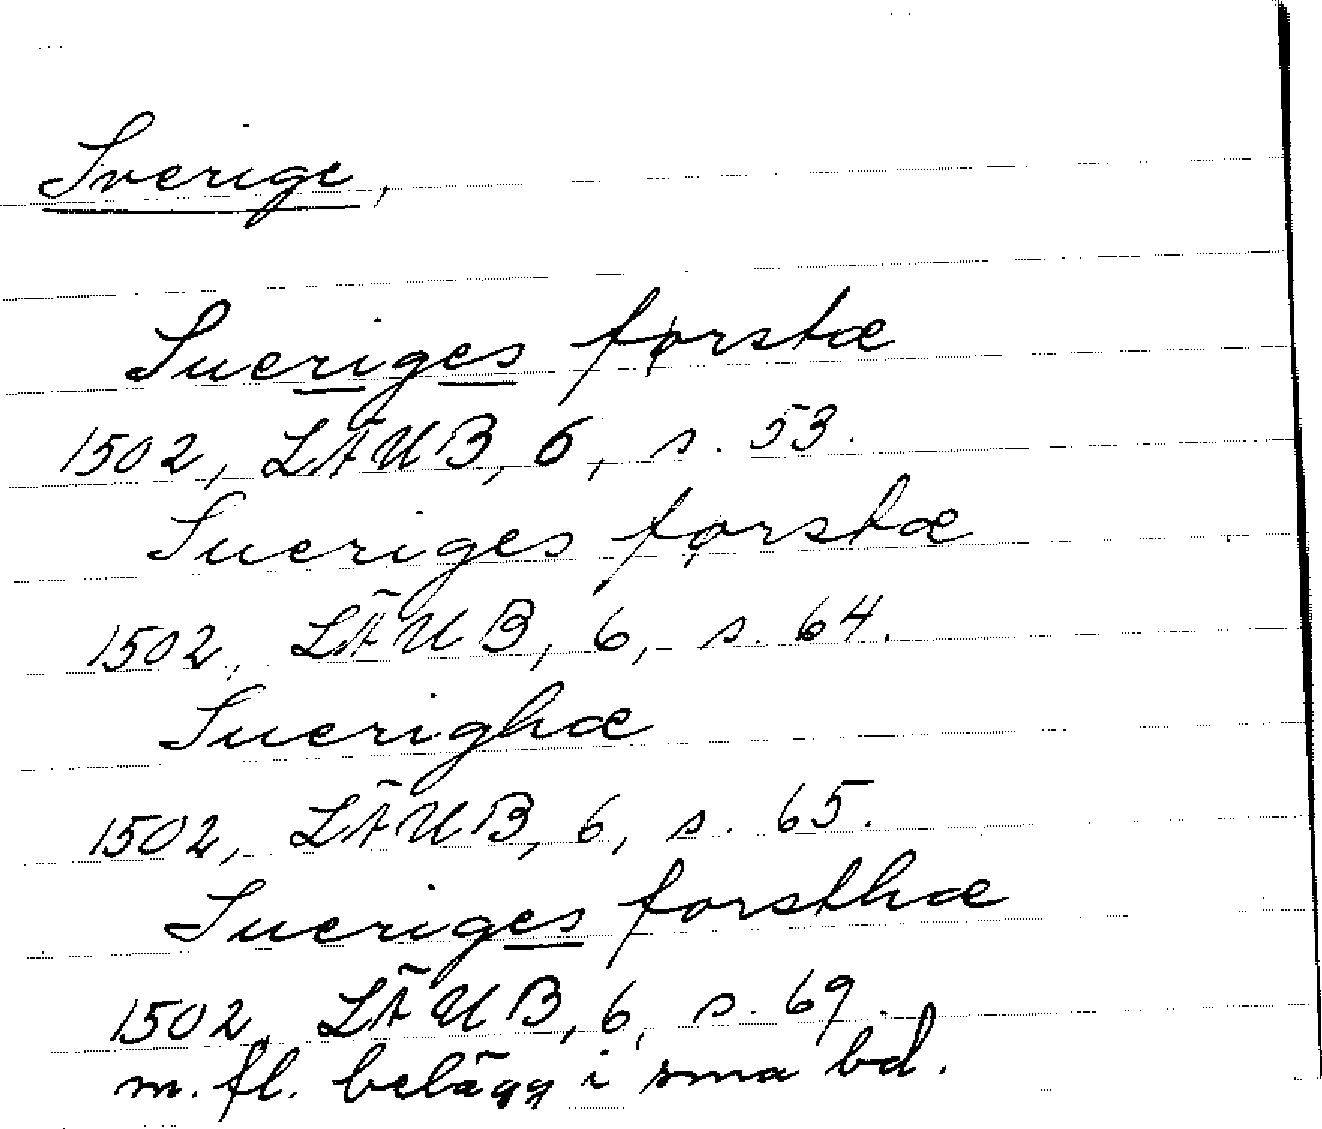 Sverige,
Sueriges førstæ
1502, LÄUB, 6, s. 53.
Sueriges førstæ
1502, LÄUB, 6, s. 64.
Suerighæ
1502, LÄUB, 6, s. 65.
Sueriges forsthæ
1502, LÄUB, 6, s. 69.
m. fl. belägg i sma bd.